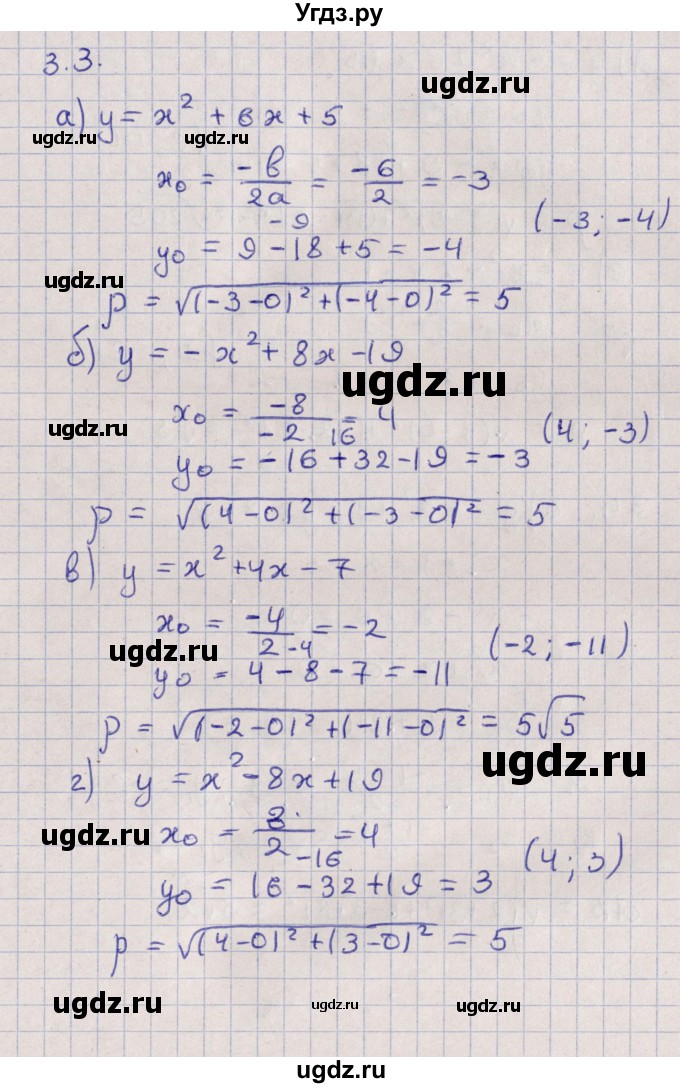 Угдз.ру
3.3.
ugdz.ru
а) y = x² + 6x + 5
ugdz.ru ugdz.ru
x₀ = -b/2a = -6/2 = -3
(-3; -4)
-9
y₀ = 9 - 18 + 5 = -4
ugdz.ru
p = √(-3-0)² + (-4-0)² = 5
б) y = -x² + 8x - 19
ugdz.ru
x₀ = -8/-2 = 4
ugdz.ru
(4; -3)
16
y₀ = -16 + 32 - 19 = -3
p = √(4-0)² + (-3-0)² = 5
в) y = x² + 4x - 7
x₀ = -4/2 = -2
ugdz.ru
(-2; -11)
-4
y₀ = 4 - 8 - 7 = -11
p = √(-2-0)² + (-11-0)² = 5√5
ugdz.ru
г) y = x² - 8x + 19
x₀ = 8/2 = 4
ugdz.ru
(4; 3)
-16
y₀ = 16 - 32 + 19 = 3
p = √(4-0)² + (3-0)² = 5
ugdz.ru ugdz.ru ugdz.ru
ugdz.ru